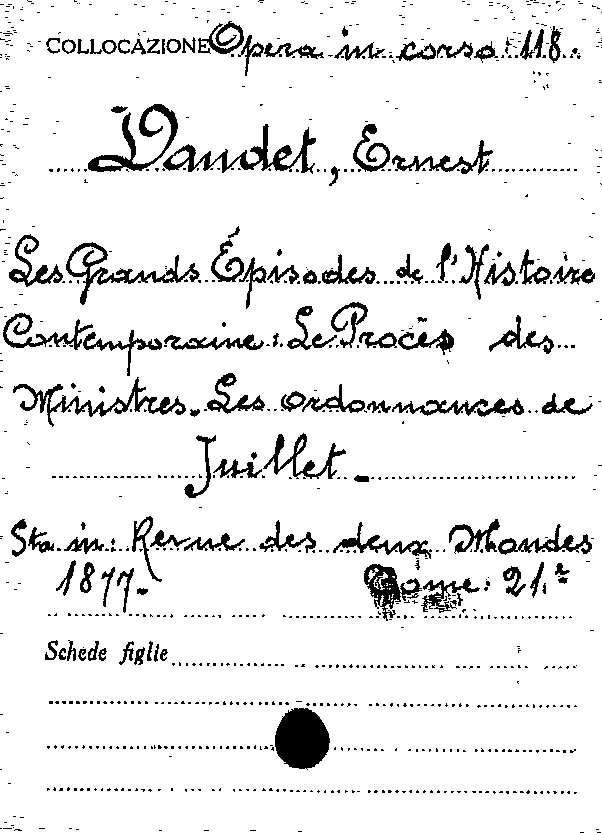 COLLOCAZIONE Opera in corso: 118.
Daudet, Ernest
Les Grands Épisodes de l'Histoire
Contemporaine: Le Procès des
Ministres. Les ordonnances de
Juillet.
Sta in: Revue des deux Mondes
1877. Tome: 21.
Schede figlie